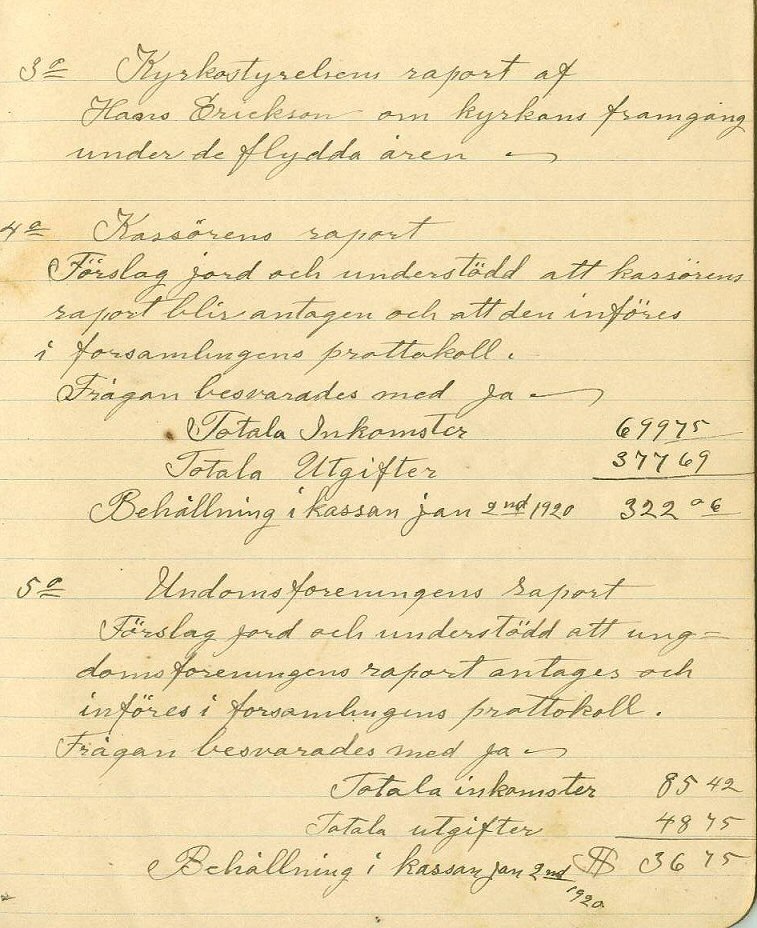 3a Kyrkostyrelsens raport af
Hans Erickson om kyrkans framgång
under de flydda åren
4a Kassörens raport
Förslag jord och understödd att kassörens
raport blir antagen och att den införes
i forsamlingens prottokoll.
Frågan besvarades med ja
Totala Inkomster 699 75
Totala Utgifter 377 69
Behållning i kassan jan 2nd 1920 322 06
5a Undomsforeningens raport
Förslag jord och understödd att ung=
domsforeningens raport antages och
införes i forsamlingens prottokoll.
Frågan besvarades med ja
Totala inkomster 85 42
Totala utgifter 48 75
Behållning i kassan jan 2nd 1920 $ 36 75